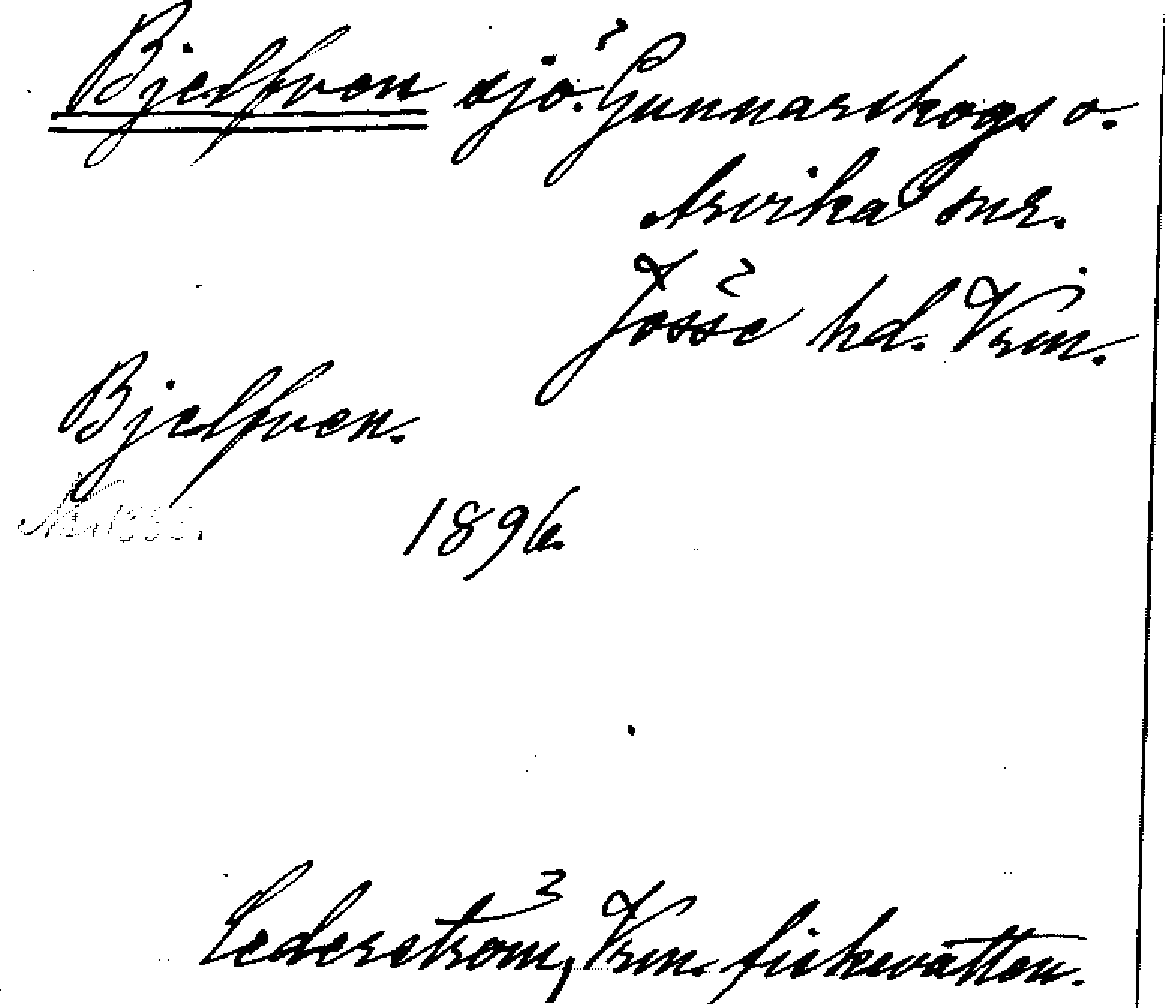 Bjelfven sjö. Gunnarskogs o.
Arvika snr.
Jösse hd. Vrm.
Bjelfven.
1896.
Cederström, Vrm. fiskevatten.